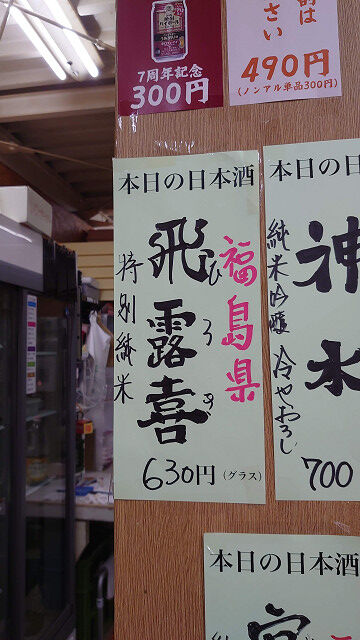 7周年記念
300円
さい
490円
(ノンアル単品300円)
本日の日本酒
福島県
飛露喜
ひろき
特別純米
630円(グラス)
本日の日
神水
純米吟醸 冷やおろし
700
本日の日本酒